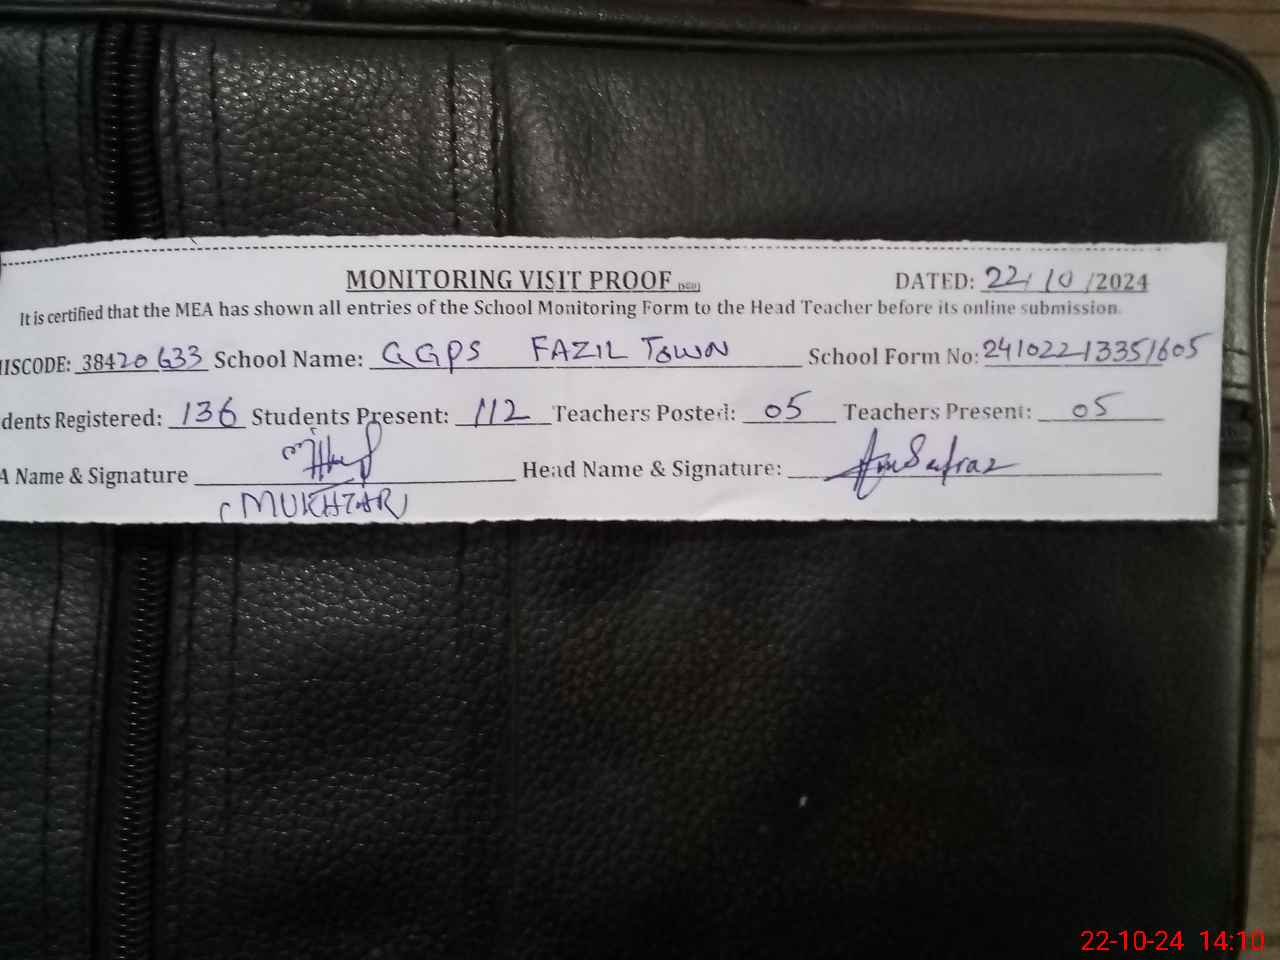 MONITORING VISIT PROOF DATED: 22/10/2024
It is certified that the MEA has shown all entries of the School Monitoring Form to the Head Teacher before its online submission.
IISCODE: 38420633 School Name: GGPS FAZIL TOWN School Form No: 24102213351605
dents Registered: 136 Students Present: 112 Teachers Posted: 05 Teachers Present: 05
A Name & Signature Head Name & Signature:
(MUKHTAR)
22-10-24 14:10